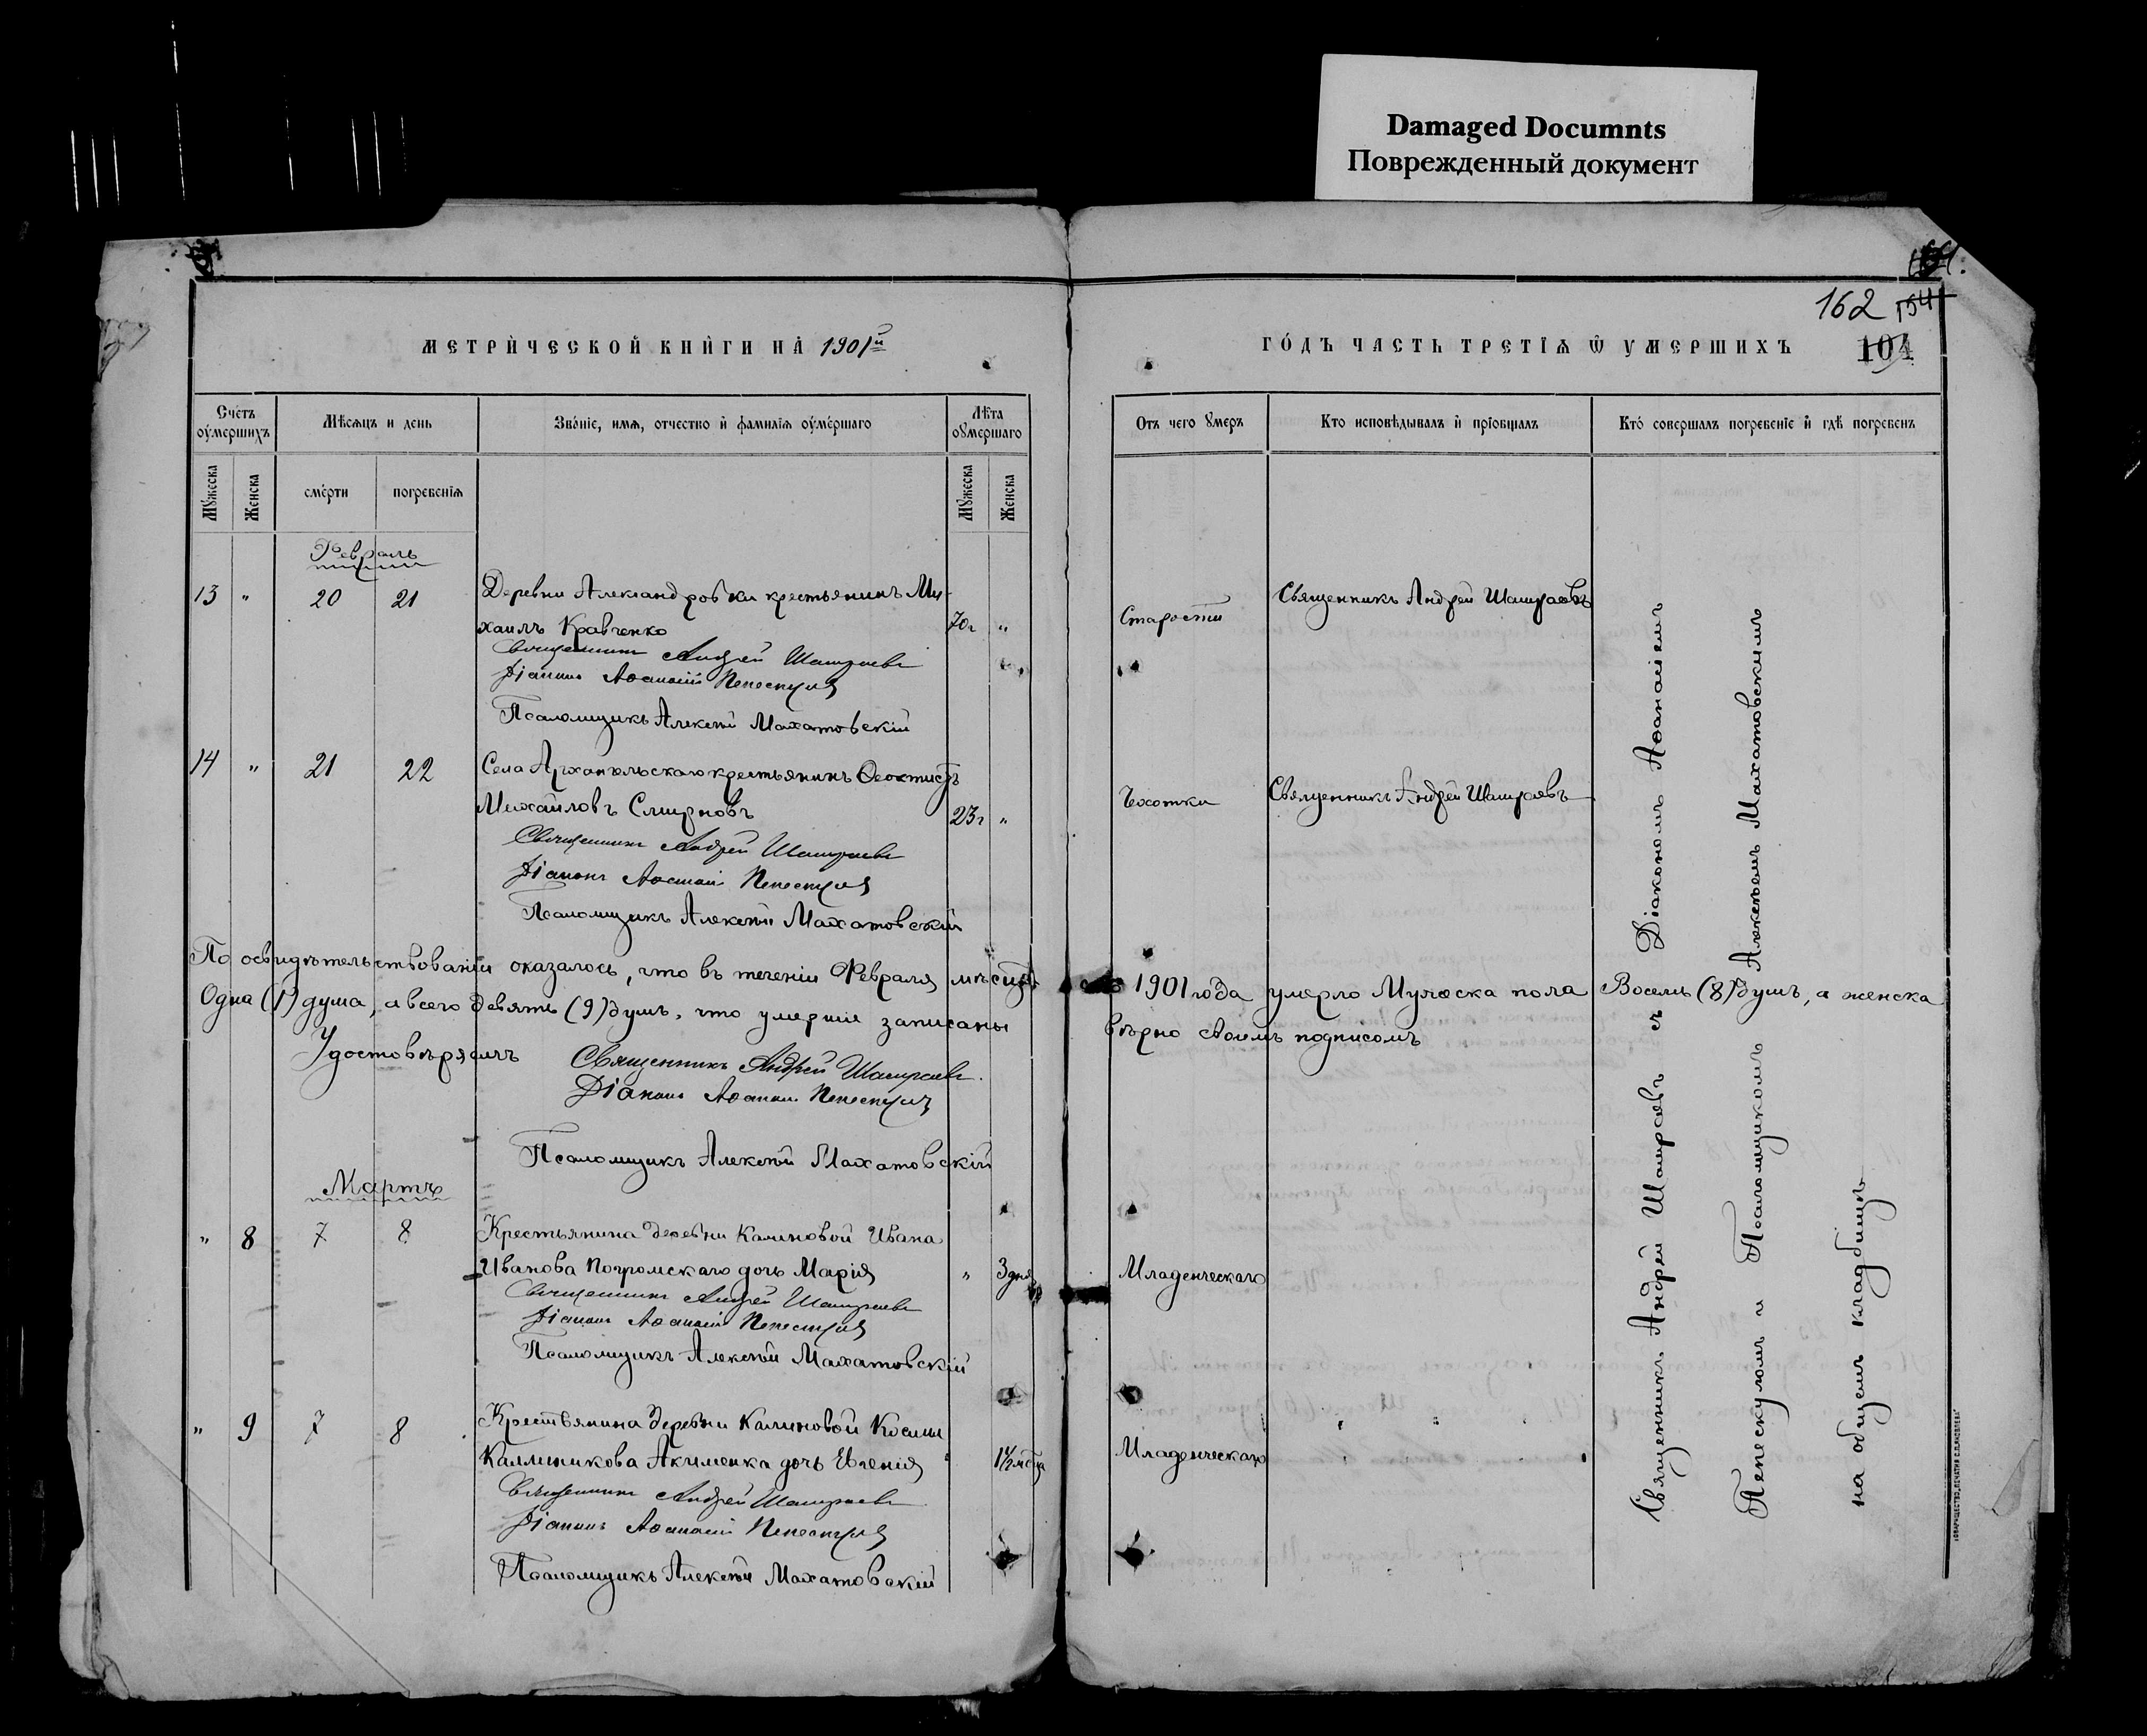 Damaged Documnts
Поврежденный документ
162 154
104
МЕТРИЧЕСКОЙ КНИГИ НА 1901й
ГОДЪ ЧАСТЬ ТРЕТІѦ Ѿ УМЕРШИХЪ
Счетъ оумершихъ
Мѣсяцъ и день
Званіе, имя, отчество и фамилія оумершаго
Лѣта оумершаго
Мужеска
Женска
смерти
погребенія
Мужеска
Женска
Отъ чего умеръ
Кто исповѣдывалъ и пріобщалъ
Кто совершалъ погребеніе и гдѣ погребенъ
Февраль
13 " 20 21 Деревни Александровки крестьянинъ Ми-
хаилъ Кравченко 70г "
Старости
Священникъ Андрей Шамраевъ
Священникъ Андрей Шамраевъ
Діаконъ Аѳанасій Пепескулъ
Псаломщикъ Алексѣй Махатовскій
14 " 21 22 Села Архангельскаго крестьянинъ Ѳеоктистъ
Михайловъ Смирновъ 23г "
Чахотки
Священникъ Андрей Шамраевъ
Священникъ Андрей Шамраевъ
Діаконъ Аѳанасій Пепескулъ
Псаломщикъ Алексѣй Махатовскій
По освидѣтельствованіи оказалось, что въ теченіи Февраля мѣсяца 1901 года умерло Мужеска пола Восемь (8) душъ, а женска
Одна (1) душа, а всего девять (9) душъ, что умершіе записаны вѣрно своимъ подписомъ
Удостовѣряемъ
Священникъ Андрей Шамраевъ.
Діаконъ Аѳанасій Пепескулъ
Псаломщикъ Алексѣй Махатовскій
Мартъ
" 8 7 8 Крестьянина деревни Калиновой Ивана
Иванова Погромскаго дочь Марія " 3 дня
Младенческаго
Священникъ Андрей Шамраевъ
Діаконъ Аѳанасій Пепескулъ
Псаломщикъ Алексѣй Махатовскій
" 9 7 8 Крестьянина деревни Калиновой Косьмы
Каллиникова Акименка дочь Евгенія " 1½ мѣсяца
Младенческаго
" "
Священникъ Андрей Шамраевъ
Діаконъ Аѳанасій Пепескулъ
Псаломщикъ Алексѣй Махатовскій
Священникъ Андрей Шамраевъ съ Діакономъ Аѳанасіемъ
Пепескуломъ и Псаломщикомъ Алексѣемъ Махатовскимъ
на общемъ кладбищѣ